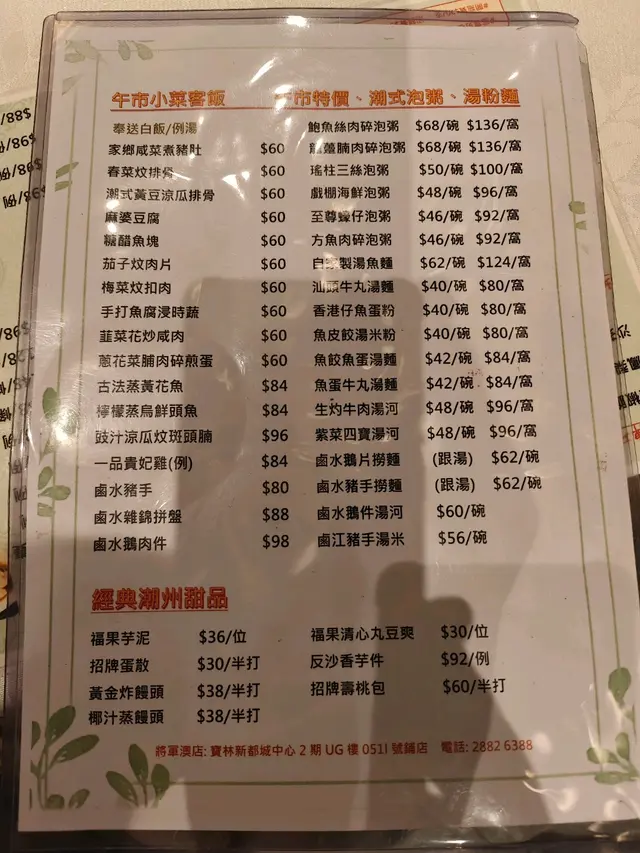 午市小菜客飯
奉送白飯/例湯
家鄉咸菜煮豬肚 $60
春菜炆排骨 $60
潮式黃豆涼瓜排骨 $60
麻婆豆腐 $60
糖醋魚塊 $60
茄子炆肉片 $60
梅菜炆扣肉 $60
手打魚腐浸時蔬 $60
韮菜花炒咸肉 $60
蔥花菜脯肉碎煎蛋 $60
古法蒸黃花魚 $84
檸檬蒸烏鮮頭魚 $84
豉汁涼瓜炆斑頭腩 $96
一品貴妃雞(例) $84
鹵水豬手 $80
鹵水雜錦拼盤 $88
鹵水鵝肉件 $98
市特價、潮式泡粥、湯粉麵
鮑魚絲肉碎泡粥 $68/碗 $136/窩
腩肉碎泡粥 $68/碗 $136/窩
瑤柱三絲泡粥 $50/碗 $100/窩
戲棚海鮮泡粥 $48/碗 $96/窩
至尊蠔仔泡粥 $46/碗 $92/窩
方魚肉碎泡粥 $46/碗 $92/窩
自家製湯魚麵 $62/碗 $124/窩
汕頭牛丸湯麵 $40/碗 $80/窩
香港仔魚蛋粉 $40/碗 $80/窩
魚皮餃湯米粉 $40/碗 $80/窩
魚餃魚蛋湯麵 $42/碗 $84/窩
魚蛋牛丸湯麵 $42/碗 $84/窩
生灼牛肉湯河 $48/碗 $96/窩
紫菜四寶湯河 $48/碗 $96/窩
鹵水鵝片撈麵 (跟湯) $62/碗
鹵水豬手撈麵 (跟湯) $62/碗
鹵水鵝件湯河 $60/碗
鹵江豬手湯米 $56/碗
經典潮州甜品
福果芋泥 $36/位
招牌蛋散 $30/半打
黃金炸饅頭 $38/半打
椰汁蒸饅頭 $38/半打
福果清心丸豆爽 $30/位
反沙香芋件 $92/例
招牌壽桃包 $60/半打
將軍澳店: 寶林新都城中心 2 期 UG 樓 051I 號鋪店 電話: 2882 6388